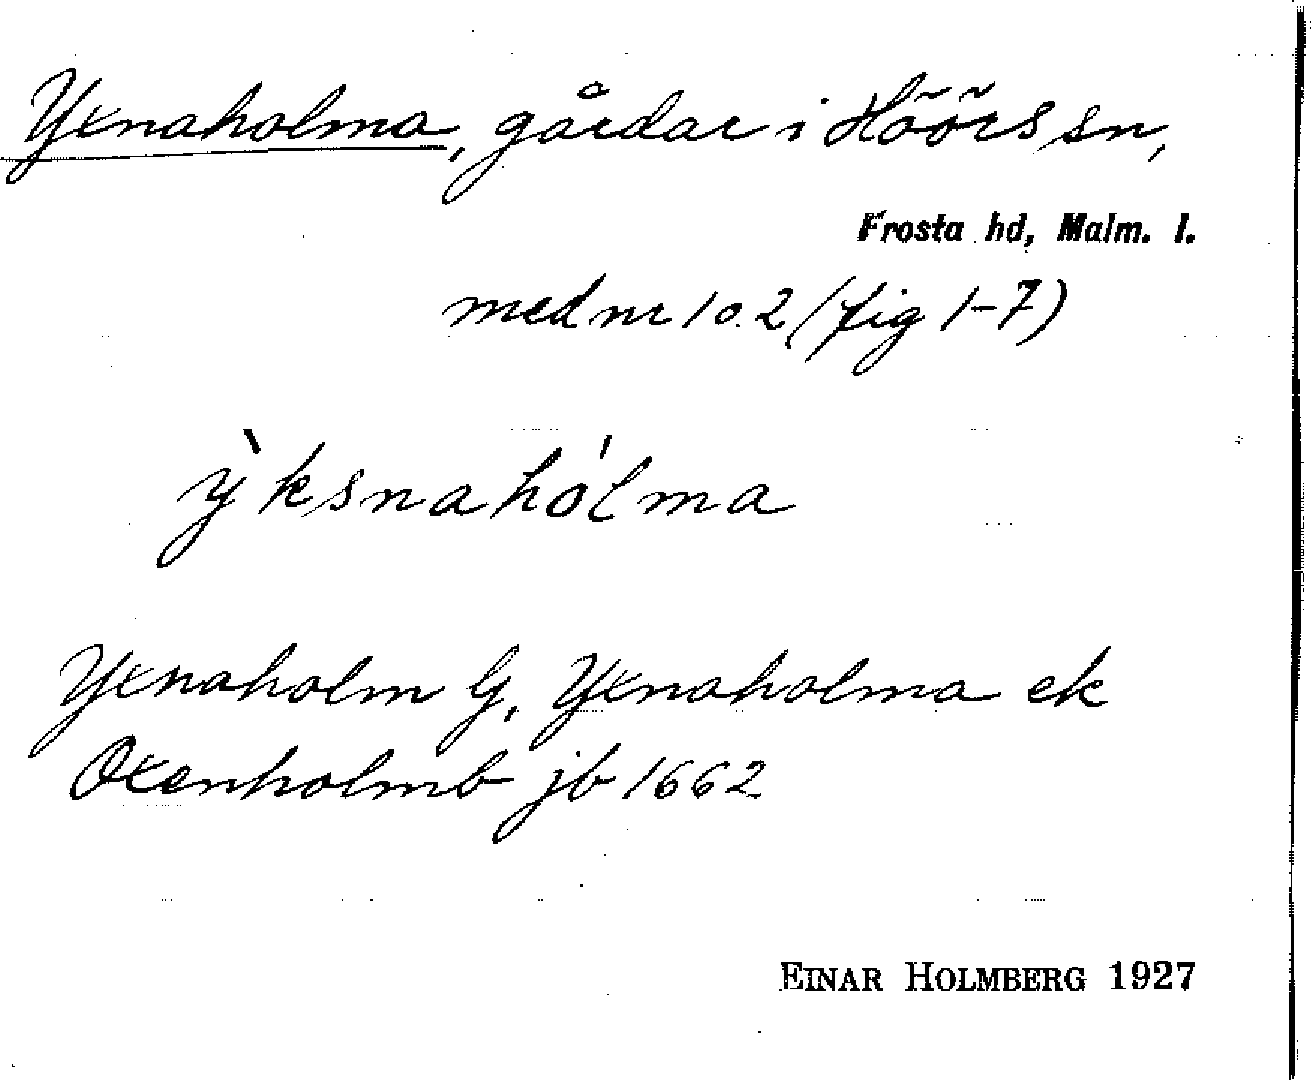 Yxnaholma, gårdar i Höörs sn,
Frosta hd, Malm. l.
med nr 1 o. 2 (fig 1-7)
ỳksnahólma
Yxnaholm G, Yxnaholma ek
Oxenholmb jb 1662
EINAR HOLMBERG 1927